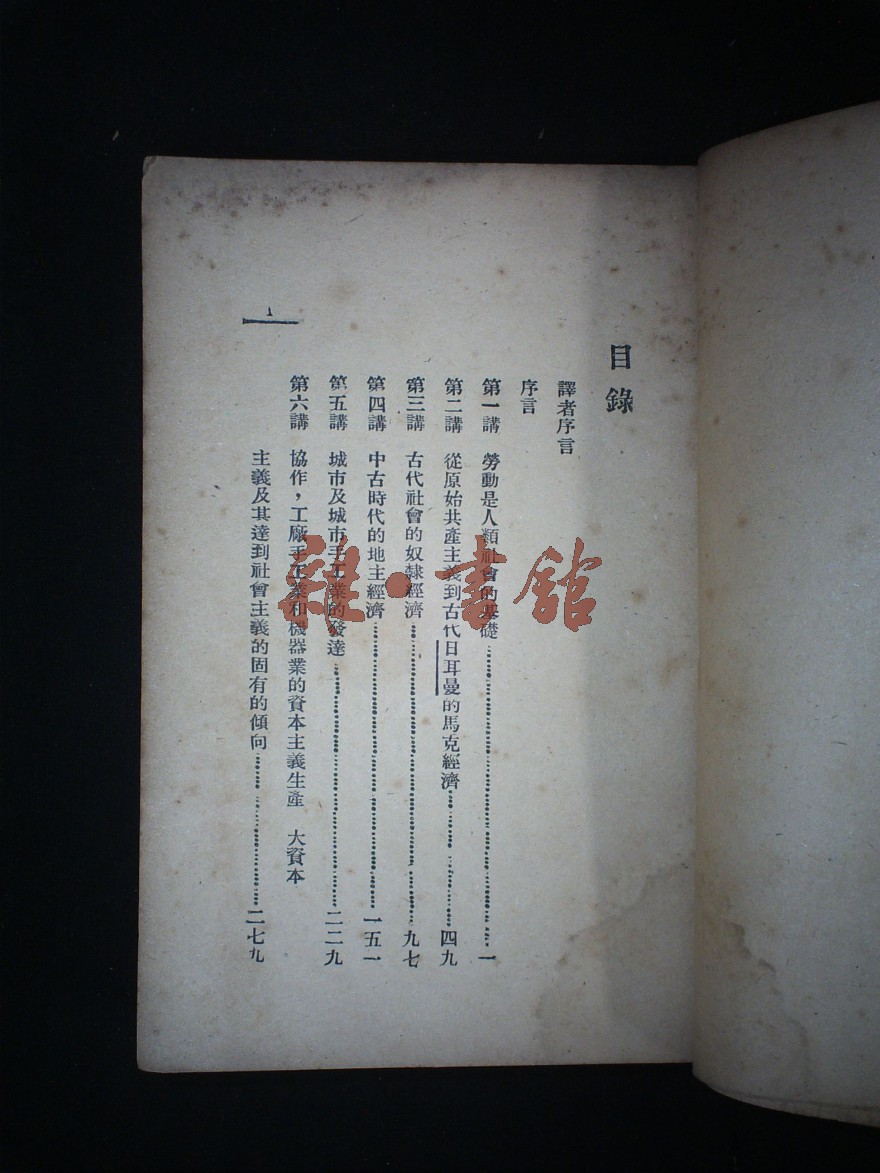 目錄
譯者序言
序言
第一講 勞動是人類社會的基礎……一
第二講 從原始共產主義到古代日耳曼的馬克經濟……四九
第三講 古代社會的奴隸經濟……九七
第四講 中古時代的地主經濟……一五一
第五講 城市及城市手工業的發達……二二九
第六講 協作,工廠手工業和機器業的資本主義生產 大資本
主義及其達到社會主義的固有的傾向……二七九
1
雜·書館